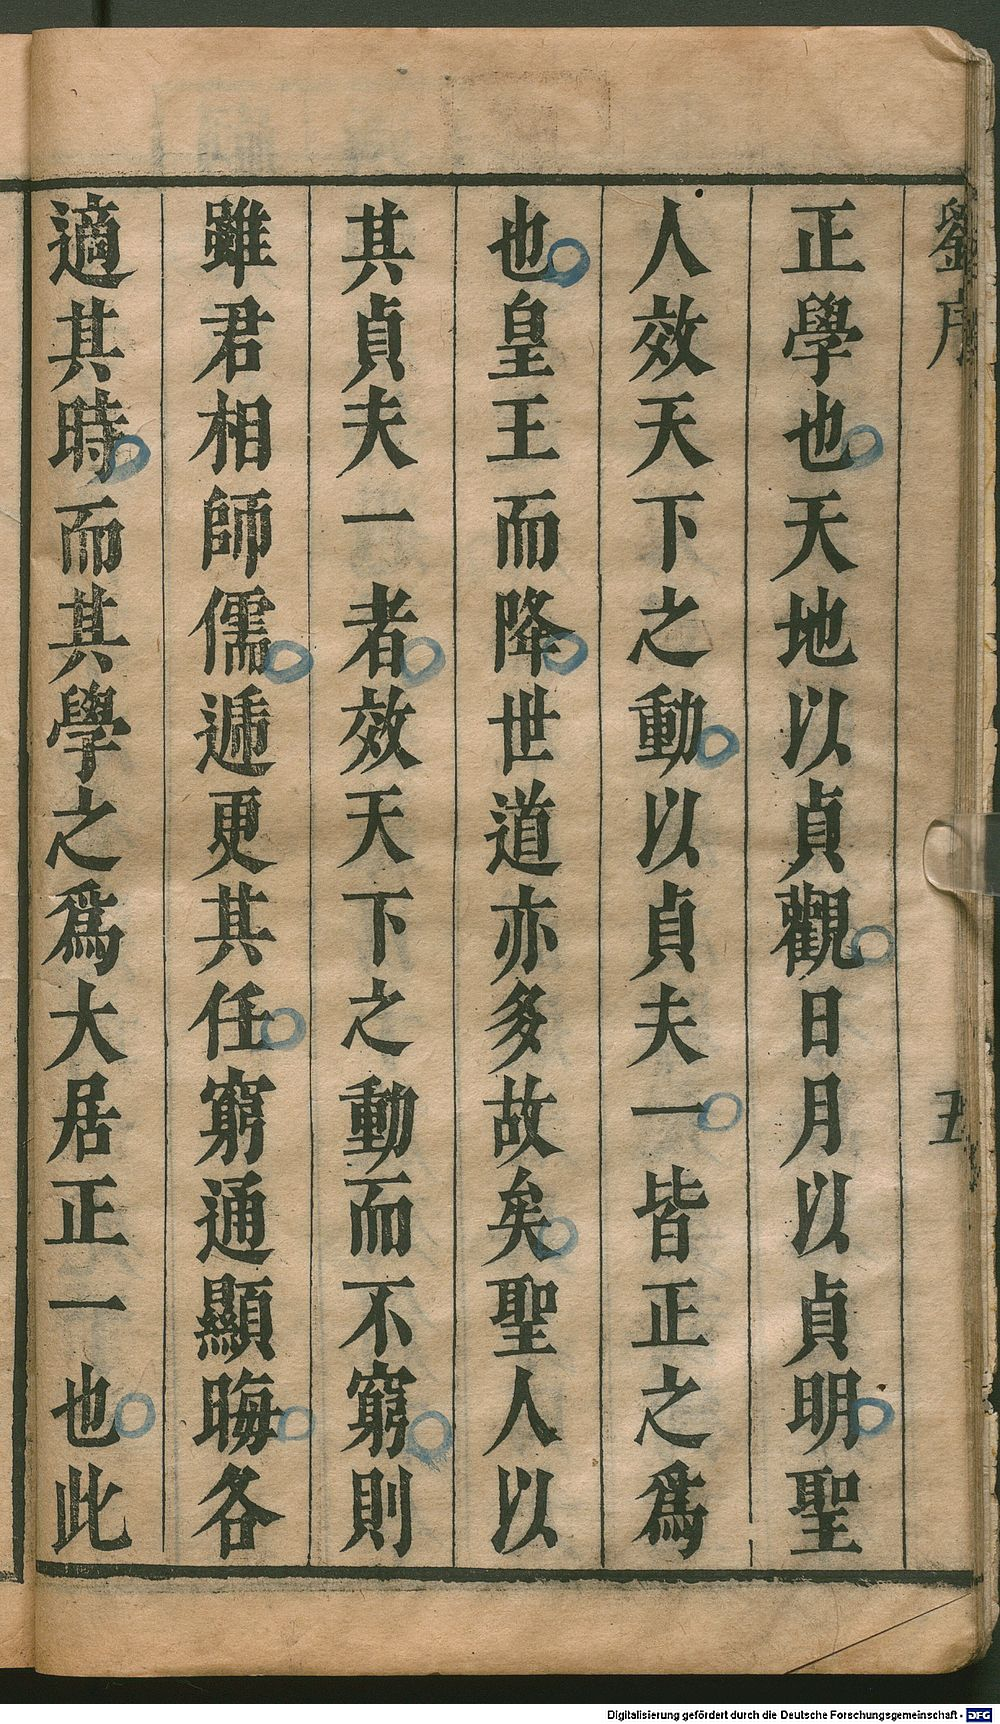 劉序
五
正學也天地以貞觀日月以貞明聖
人效天下之動以貞夫一皆正之爲
也皇王而降世道亦多故矣聖人以
其貞夫一者效天下之動而不窮則
雖君相師儒遞更其任窮通顯晦各
適其時而其學之爲大居正一也此
Digitalisierung gefördert durch die Deutsche Forschungsgemeinschaft - DFG